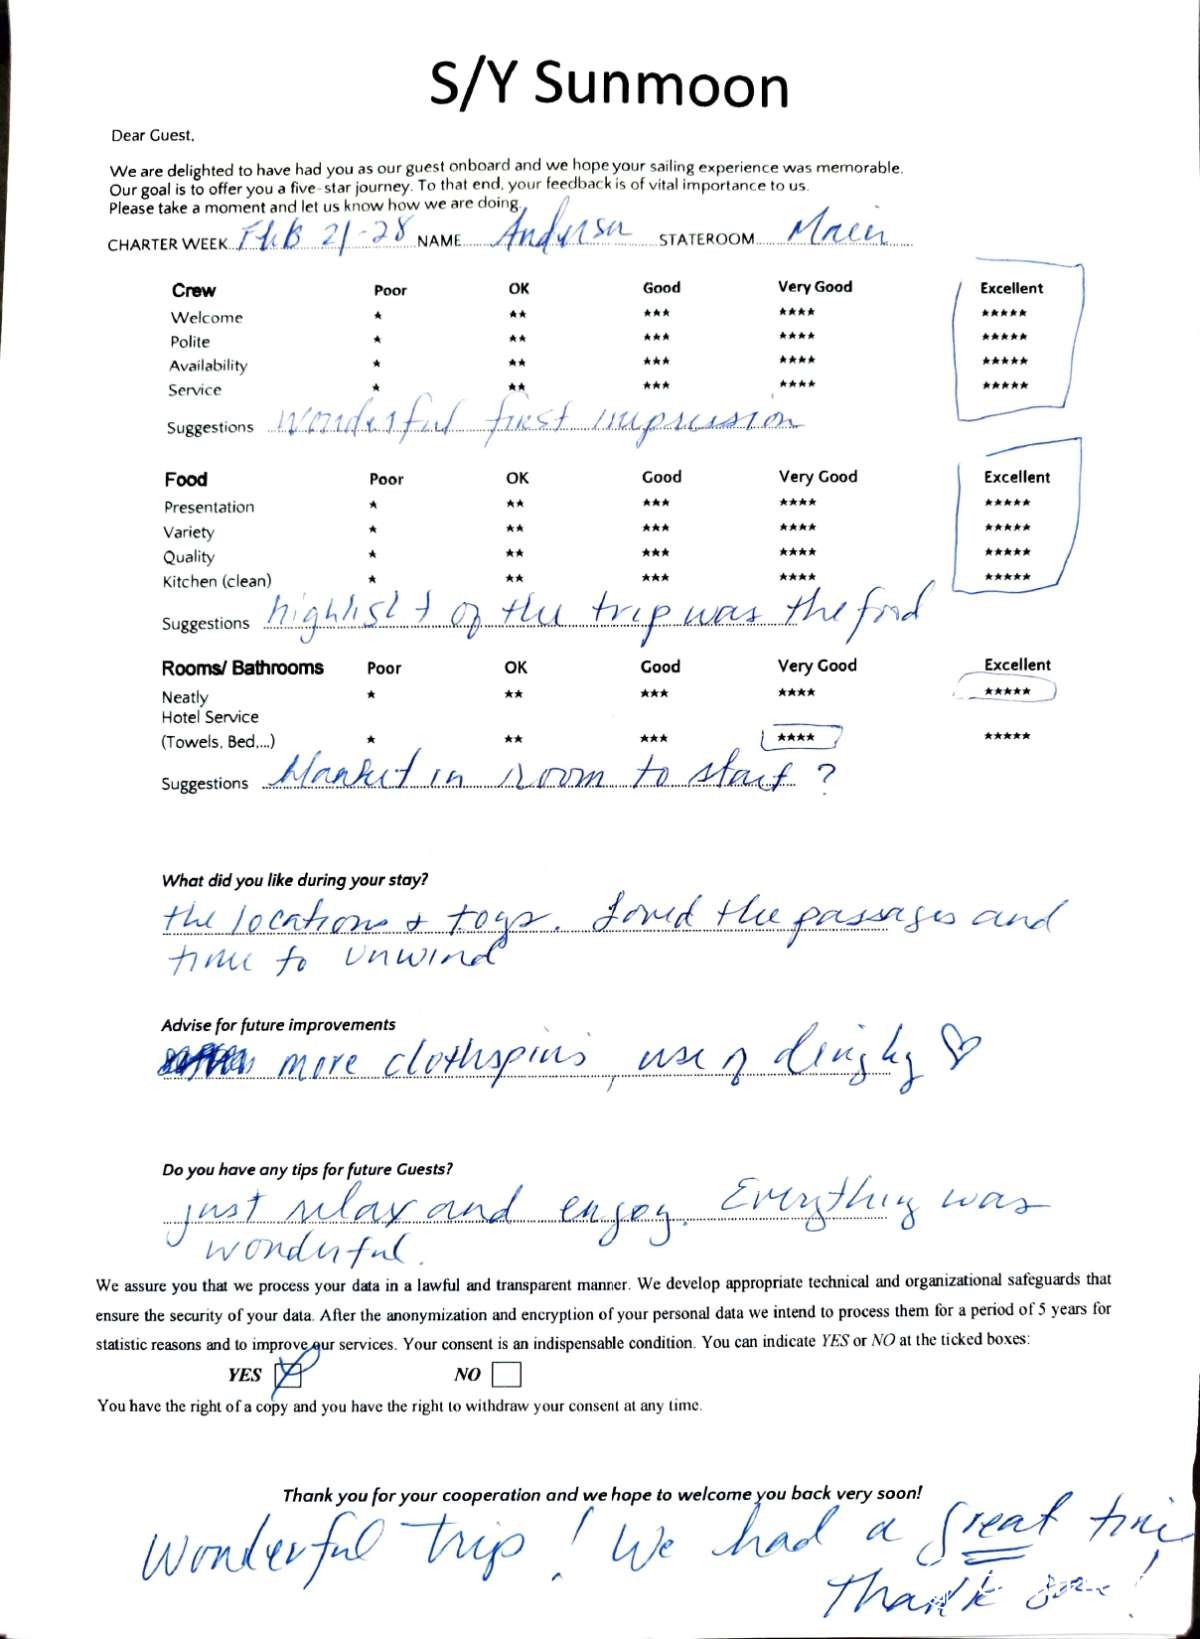 S/Y Sunmoon
Dear Guest,
We are delighted to have had you as our guest onboard and we hope your sailing experience was memorable.
Our goal is to offer you a five-star journey. To that end, your feedback is of vital importance to us.
Please take a moment and let us know how we are doing.
CHARTER WEEK Feb 21-28 NAME Andersen STATEROOM Main
Crew Poor OK Good Very Good Excellent
Welcome ★ ★★ ★★★ ★★★★ ★★★★★
Polite ★ ★★ ★★★ ★★★★ ★★★★★
Availability ★ ★★ ★★★ ★★★★ ★★★★★
Service ★ ★★ ★★★ ★★★★ ★★★★★
Suggestions wonderful first impression
Food Poor OK Good Very Good Excellent
Presentation ★ ★★ ★★★ ★★★★ ★★★★★
Variety ★ ★★ ★★★ ★★★★ ★★★★★
Quality ★ ★★ ★★★ ★★★★ ★★★★★
Kitchen (clean) ★ ★★ ★★★ ★★★★ ★★★★★
Suggestions highlight of the trip was the food
Rooms/ Bathrooms Poor OK Good Very Good Excellent
Neatly ★ ★★ ★★★ ★★★★ ★★★★★
Hotel Service
(Towels, Bed,...) ★ ★★ ★★★ ★★★★ ★★★★★
Suggestions blanket in room to start?
What did you like during your stay?
the locations + toys. Loved the passages and
time to unwind
Advise for future improvements
more clothspins, use of dinghy ♡
Do you have any tips for future Guests?
just relax and enjoy. Everything was
wonderful.
We assure you that we process your data in a lawful and transparent manner. We develop appropriate technical and organizational safeguards that
ensure the security of your data. After the anonymization and encryption of your personal data we intend to process them for a period of 5 years for
statistic reasons and to improve our services. Your consent is an indispensable condition. You can indicate YES or NO at the ticked boxes:
YES NO
You have the right of a copy and you have the right to withdraw your consent at any time.
Thank you for your cooperation and we hope to welcome you back very soon!
Wonderful trip! We had a great time
Thank !